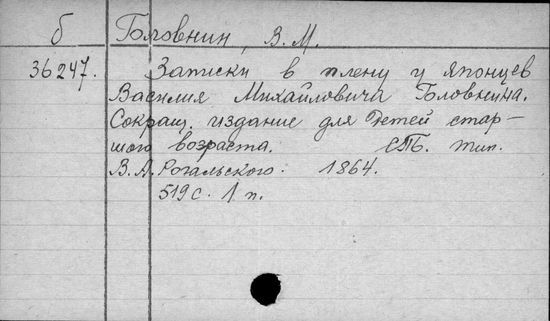 б Головнин, В.М.
36247. Записки в плену у японцев
Василия Михайловича Головнина.
Сокращ. издание для детей стар-
шого возраста. СПб. тип.
В.А. Рогальского. 1864.
519 с. 1 п.